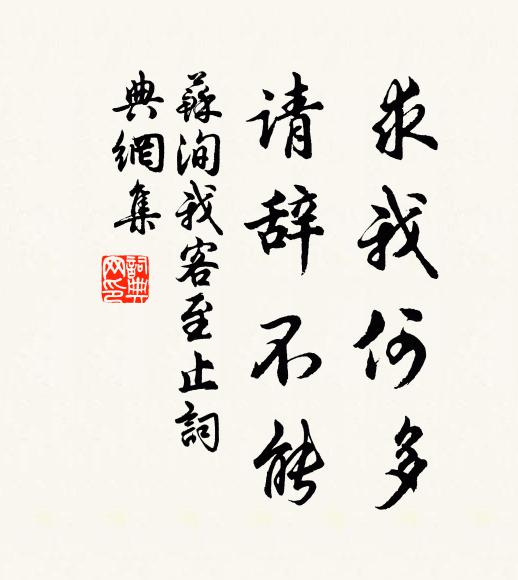 求我何多
请辞不能
蘇洵我客至止詞
典網集
詞典網印